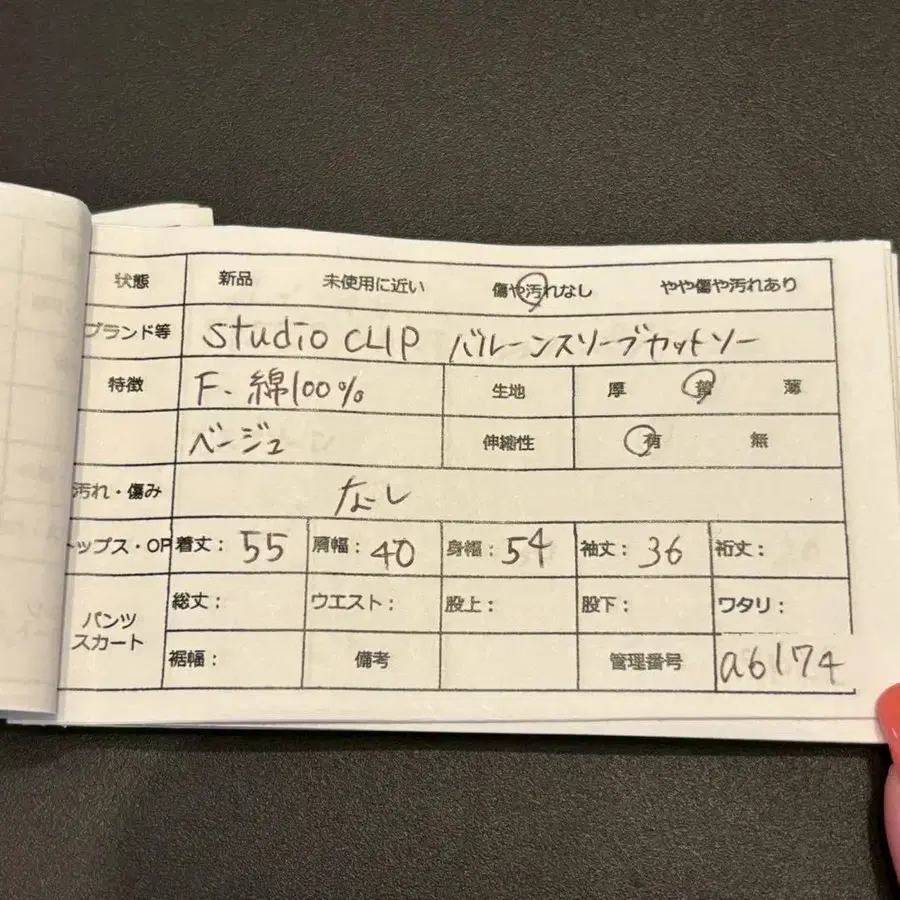 状態 新品 未使用に近い 傷や汚れなし やや傷や汚れあり
ブランド等 studio CLIP バルーンスリーブカットソー
特徴 F. 綿100% 生地 厚 普 薄
ベージュ 伸縮性 有 無
汚れ・傷み なし
トップス・OP 着丈: 55 肩幅: 40 身幅: 54 袖丈: 36 裄丈:
パンツ スカート 総丈: ウエスト: 股上: 股下: ワタリ:
裾幅: 備考 管理番号 a6174